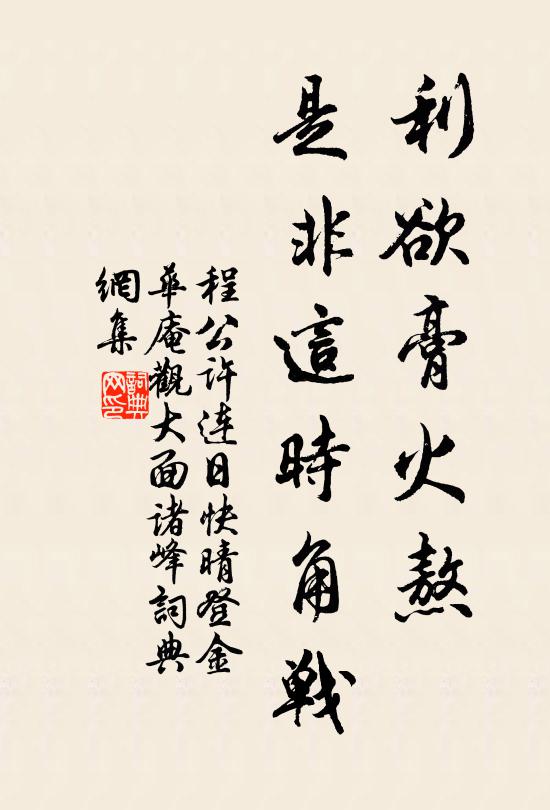 利欲膏火熬
是非這時角戰
程公许连日快晴登金
華庵觀大面诸峰詞典
網集
詞典网印